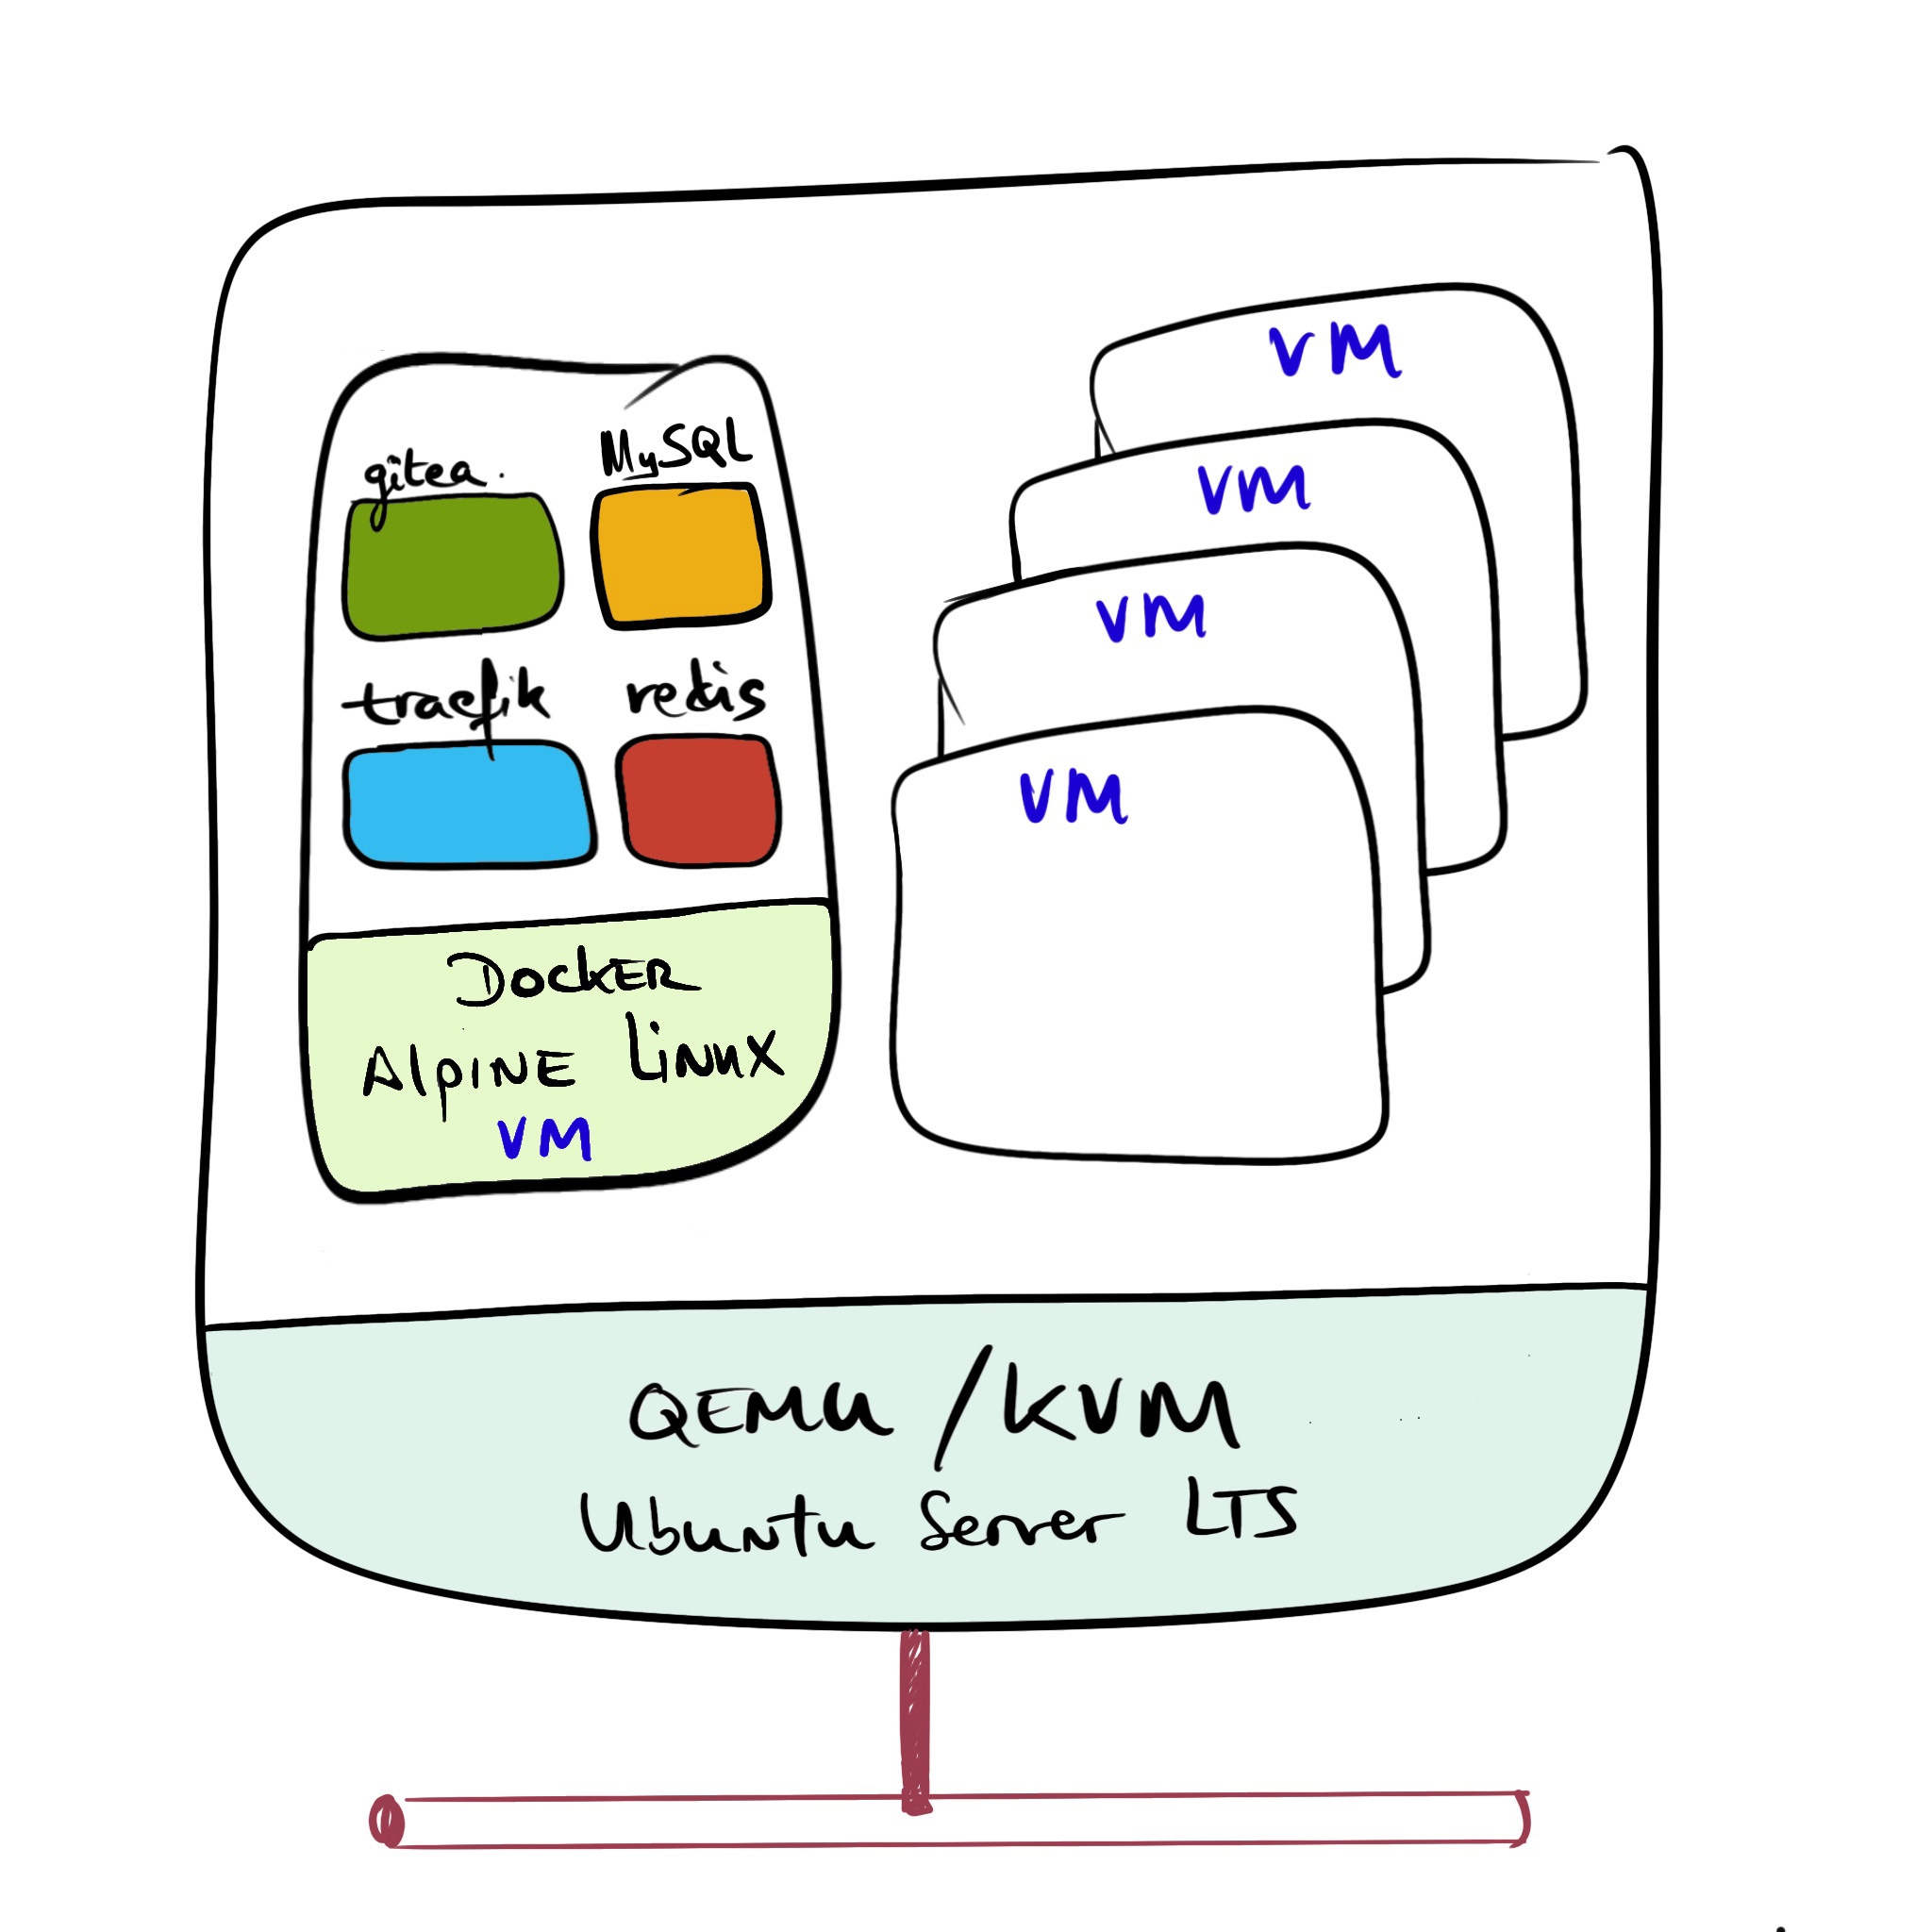 gitea.
MySQL
traefik
redis
DOCKER
AlpINE LiNUX
VM
VM
VM
VM
VM
QEMU / KVM
Ubuntu Server LTS